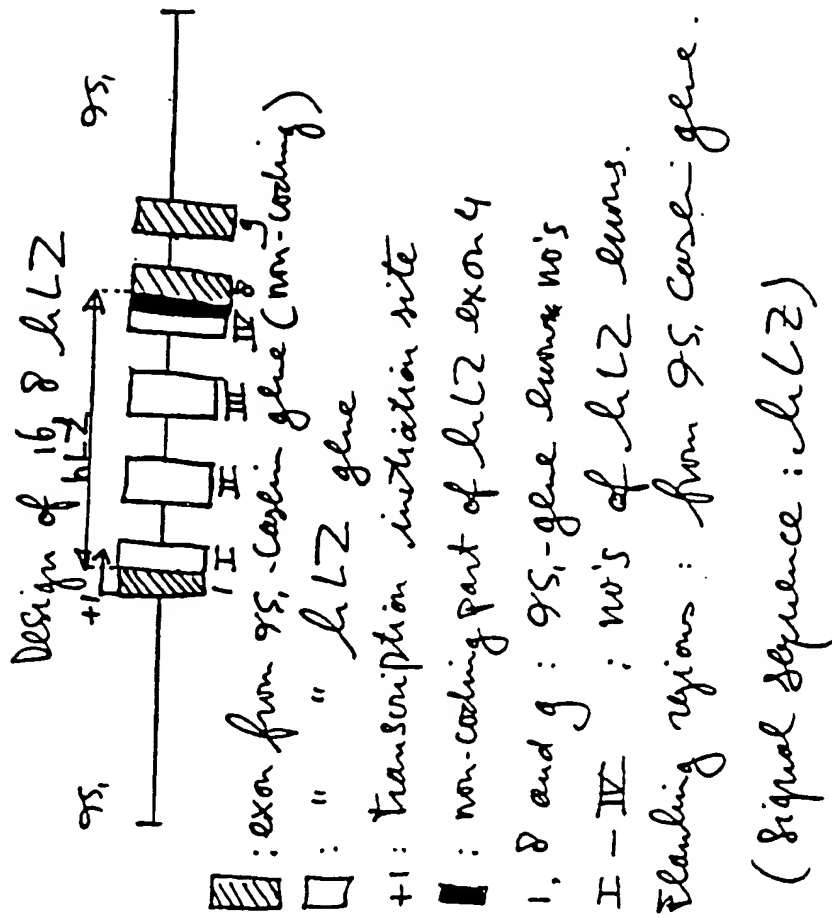 Design of 16 8 hLZ
+1 hLZ
αS₁ αS₁
1 I II III IV 8 9
: exon from αS₁-casein gene (non-coding)
: " " hLZ gene
+1: transcription initiation site
: non-coding part of hLZ exon 4
1, 8 and 9 : αS₁-gene exon no's
I – IV : no's of hLZ exons.
Flanking regions : from αS₁ casein gene.
(Signal sequence : hLZ)